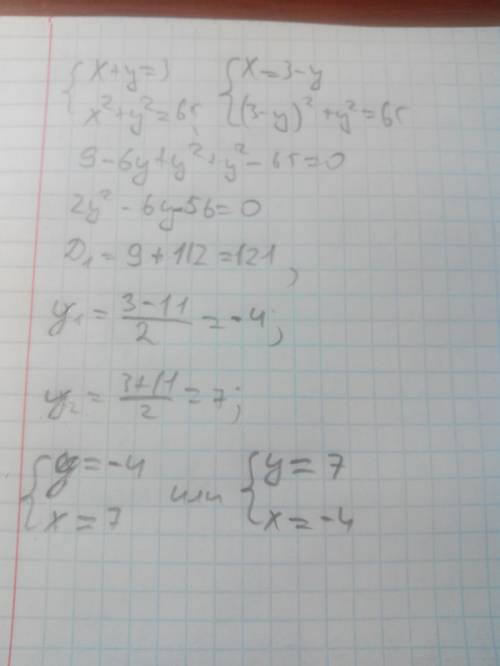 {x+y=3 {x=3-y
{x²+y²=65 {(3-y)²+y²=65
9-6y+y²+y²-65=0
2y²-6y-56=0
D₁=9+112=121,
y₁=(3-11)/2=-4;
y₂=(3+11)/2=7;
{y=-4 или {y=7
{x=7 {x=-4